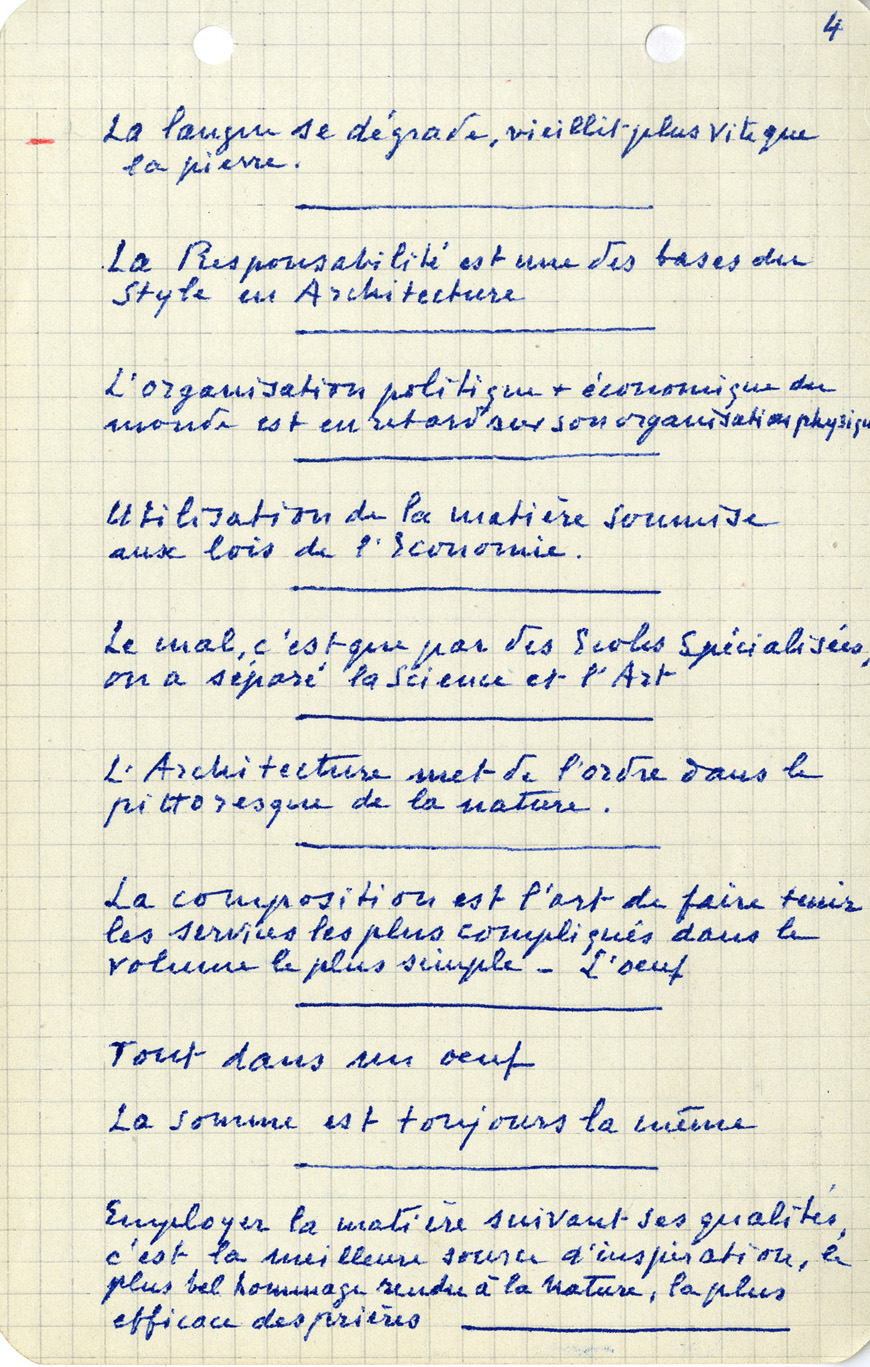 4
La langue se dégrade, vieillit plus vite que
la pierre.
La Responsabilité est une des bases du
Style en Architecture
L'organisation politique + économique du
monde est en retard sur son organisation physiqu
Utilisation de la matière soumise
aux lois de l'Economie.
Le mal, c'est que par des Ecoles Spécialisées,
on a séparé la Science et l'Art
L'Architecture met de l'ordre dans le
pittoresque de la nature.
La composition est l'art de faire tenir
les services les plus compliqués dans le
volume le plus simple - L'oeuf
Tout dans un oeuf
La somme est toujours la même
Employer la matière suivant ses qualités,
c'est la meilleure source d'inspiration, le
plus bel hommage rendu à la Nature, la plus
efficace des prières